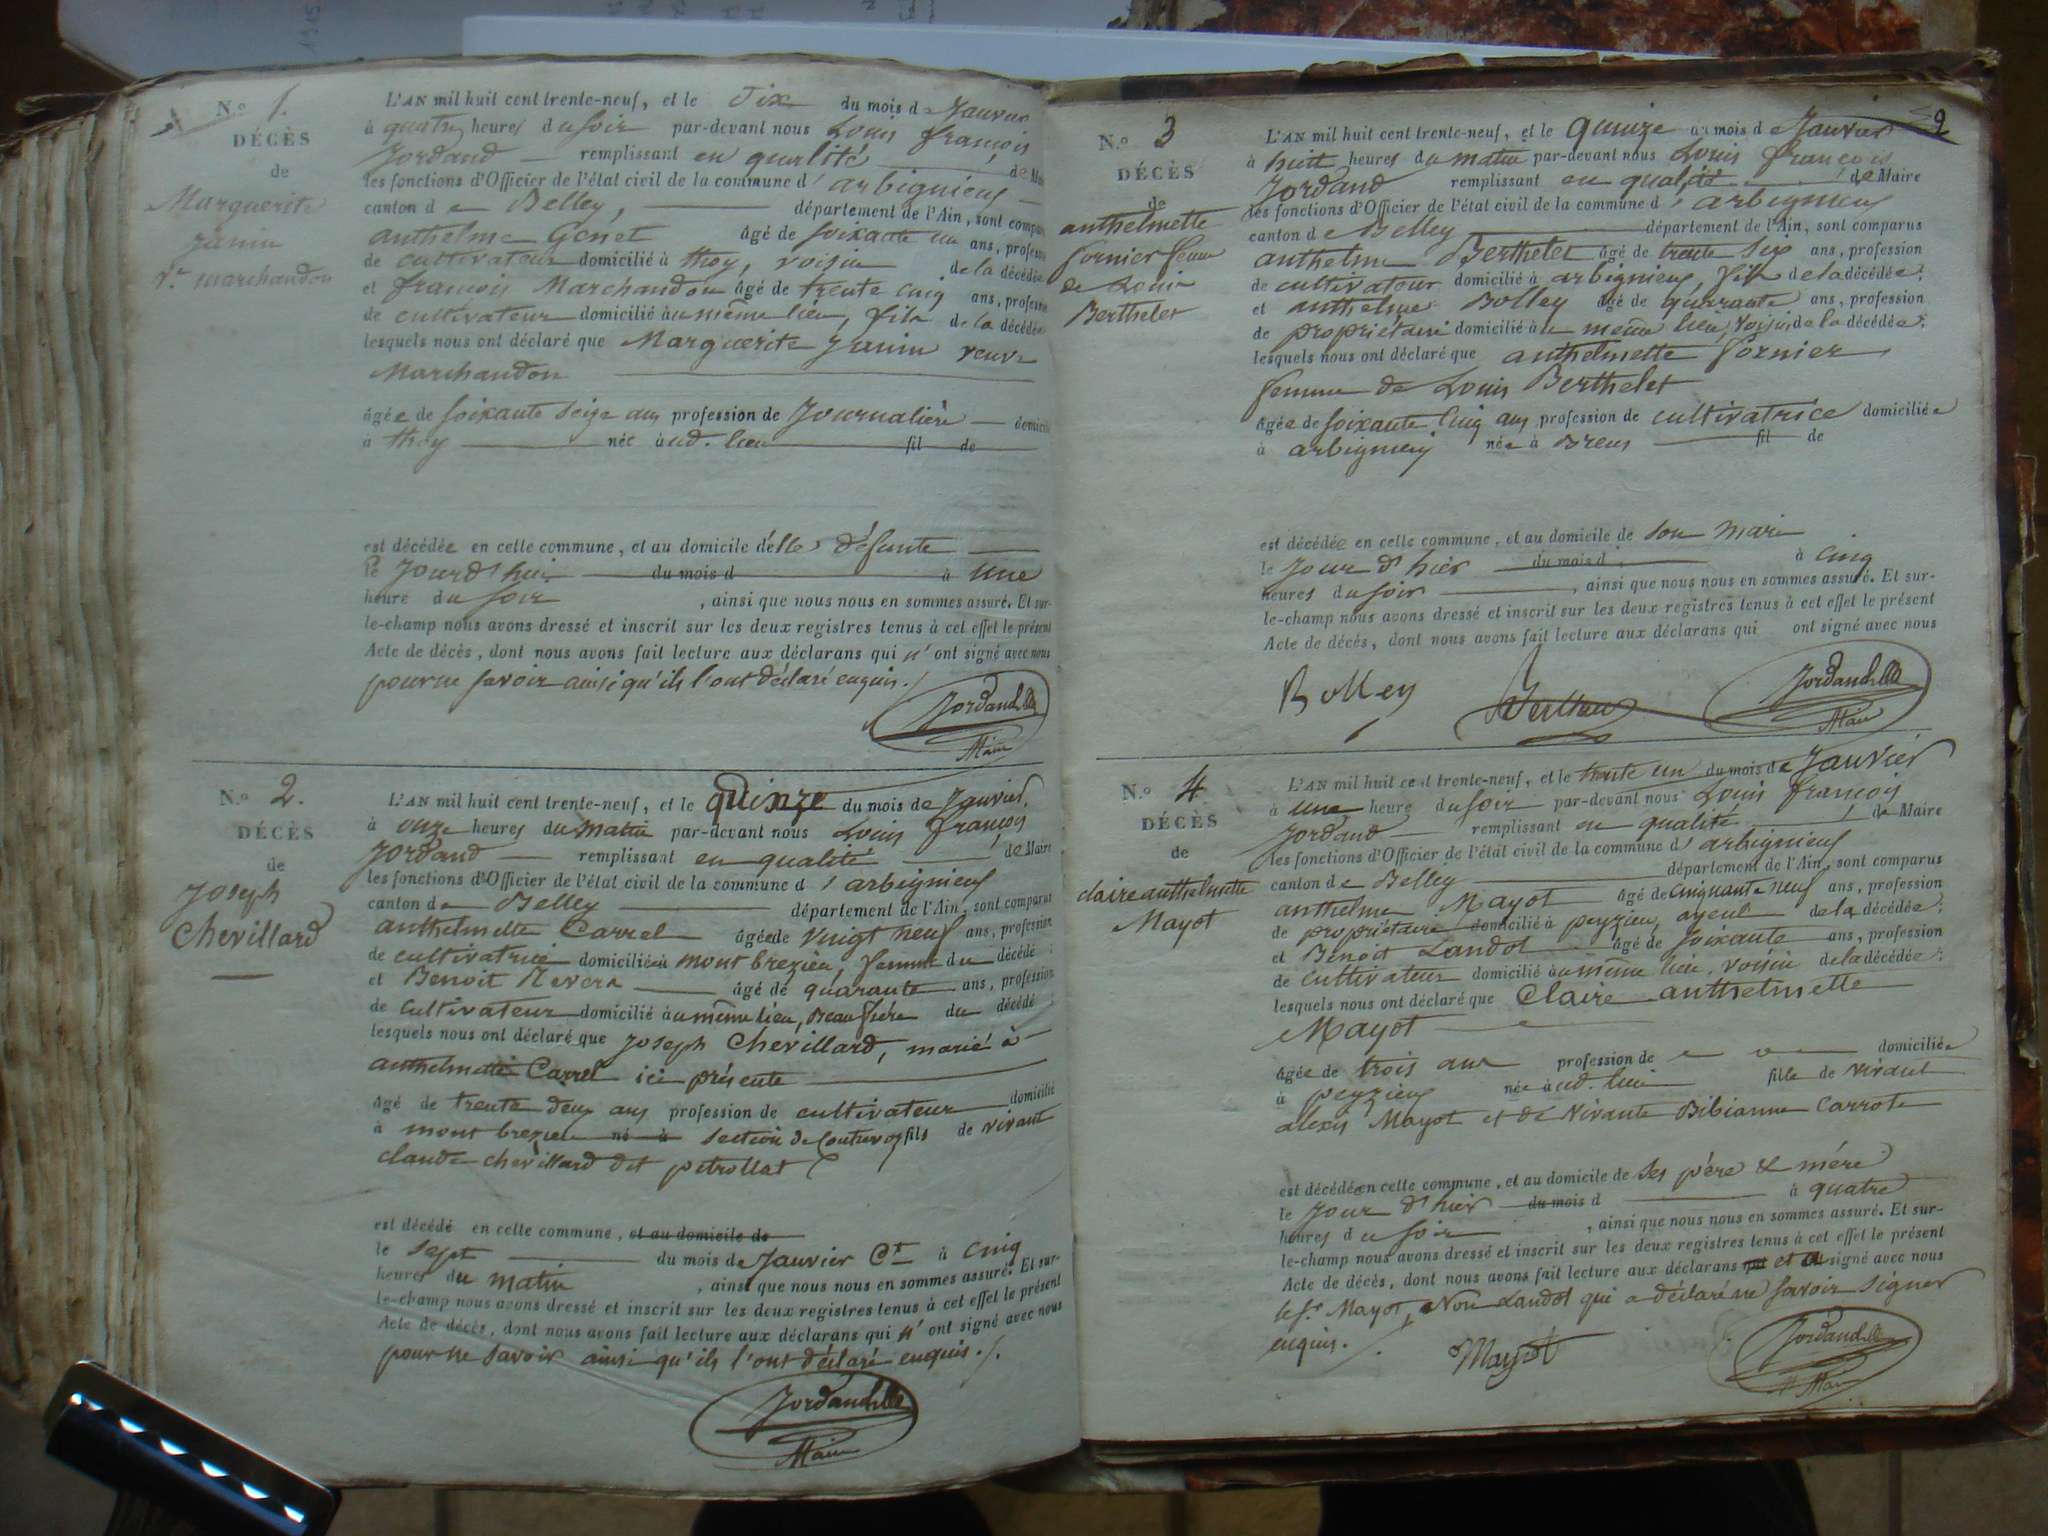 N.o 1.
DÉCÈS
de
Marguerite
Janin
Ve. marchandon
L'AN mil huit cent trente-neuf, et le six du mois de Janvier
à quatre heures du soir par-devant nous Louis françois
Jordand remplissant en qualité de Maire
les fonctions d'Officier de l'état civil de la commune d'arbignieu
canton de Belley, département de l'Ain, sont comparus
anthelme Genet âgé de soixante un ans, profession
de cultivateur domicilié à thoy, voisin de la décédée
et françois Marchandon âgé de trente cinq ans, profession
de cultivateur domicilié au même lieu, fils de la décédée
lesquels nous ont déclaré que Marguerite Janin veuve
Marchandon
âgée de soixante seize ans profession de Journalière domicilié
à thoy née aud. lieu fil de
est décédée en cette commune, et au domicile d'elle défunte
le Jourd'hui du mois d à une
heure du soir, ainsi que nous nous en sommes assuré. Et sur-
le-champ nous avons dressé et inscrit sur les deux registres tenus à cet effet le présent
Acte de décès, dont nous avons fait lecture aux déclarans qui n'ont signé avec nous
pour ne savoir ainsi qu'ils l'ont déclaré enquis./.
Jordand
Maire
N.o 2.
DÉCÈS
de
Joseph
Chevillard
L'AN mil huit cent trente-neuf, et le quinze du mois de Janvier,
à onze heures du matin par-devant nous Louis françois
Jordand remplissant en qualité de Maire
les fonctions d'Officier de l'état civil de la commune d'arbignieu
canton de Belley département de l'Ain, sont comparus
anthelmette Carrel âgée de vingt neuf ans, profession
de cultivatrice domiciliée à mont brezieu, femme du décédé
et Benoit Nevera âgé de quarante ans, profession
de cultivateur domicilié au même lieu, Beau frère du décédé
lesquels nous ont déclaré que Joseph Chevillard, marié à
anthelmette Carrel ici présente
âgé de trente deux ans profession de cultivateur domicilié
à mont brezieu né à section de Contrevoz fils de vivant
claude chevillard dit petrollat
est décédé en cette commune, et au domicile de
le sept du mois de Janvier Ct à cinq
heures du matin, ainsi que nous nous en sommes assuré. Et sur-
le-champ nous avons dressé et inscrit sur les deux registres tenus à cet effet le présent
Acte de décès, dont nous avons fait lecture aux déclarans qui n'ont signé avec nous
pour ne savoir ainsi qu'ils l'ont déclaré enquis./.
Jordand
Maire
2
N.o 3
DÉCÈS
de
anthelmette
fornier femme
de Louis
Berthelet
L'AN mil huit cent trente-neuf, et le quinze du mois de Janvier
à huit heures du matin par-devant nous Louis françois
Jordand remplissant en qualité de Maire
les fonctions d'Officier de l'état civil de la commune d'arbignieu
canton de Belley département de l'Ain, sont comparus
anthelme Berthelet âgé de trente six ans, profession
de cultivateur domicilié à arbignieu, fils de la décédée;
et anthelme Bolley âgé de quarante ans, profession
de propriétaire domicilié au même lieu, voisin de la décédée;
lesquels nous ont déclaré que anthelmette fornier,
femme de Louis Berthelet
âgée de soixante cinq ans profession de cultivatrice domiciliée
à arbignieu née à Brens fil de
est décédée en cette commune, et au domicile de son mari
le Jour d'hier du mois d à cinq
heures du soir, ainsi que nous nous en sommes assuré. Et sur-
le-champ nous avons dressé et inscrit sur les deux registres tenus à cet effet le présent
Acte de décès, dont nous avons fait lecture aux déclarans qui ont signé avec nous
Bolley Jordand
Maire
N.o 4
DÉCÈS
de
claire anthelmette
Mayot
L'AN mil huit cent trente-neuf, et le trente un du mois de Janvier
à une heure du soir par-devant nous Louis françois
Jordand remplissant en qualité de Maire
les fonctions d'Officier de l'état civil de la commune d'arbignieu
canton de Belley département de l'Ain, sont comparus
anthelme Mayot âgé de cinquante neuf ans, profession
de propriétaire domicilié à peyzieu, ayeul de la décédée;
et Benoit Landot âgé de soixante ans, profession
de cultivateur domicilié au même lieu, voisin de la décédée;
lesquels nous ont déclaré que Claire anthelmette
Mayot
âgée de trois ans profession de domiciliée
à peyzieu née aud. lieu fille de vivant
alexis Mayot et de vivante Bibianne Carrot
est décédée en cette commune, et au domicile de ses père & mère
le Jour d'hier du mois d à quatre
heures du soir, ainsi que nous nous en sommes assuré. Et sur-
le-champ nous avons dressé et inscrit sur les deux registres tenus à cet effet le présent
Acte de décès, dont nous avons fait lecture aux déclarans et a signé avec nous
le sr. Mayot, Non Landot qui a déclaré ne savoir signer
enquis./.
Mayot Jordand
Maire